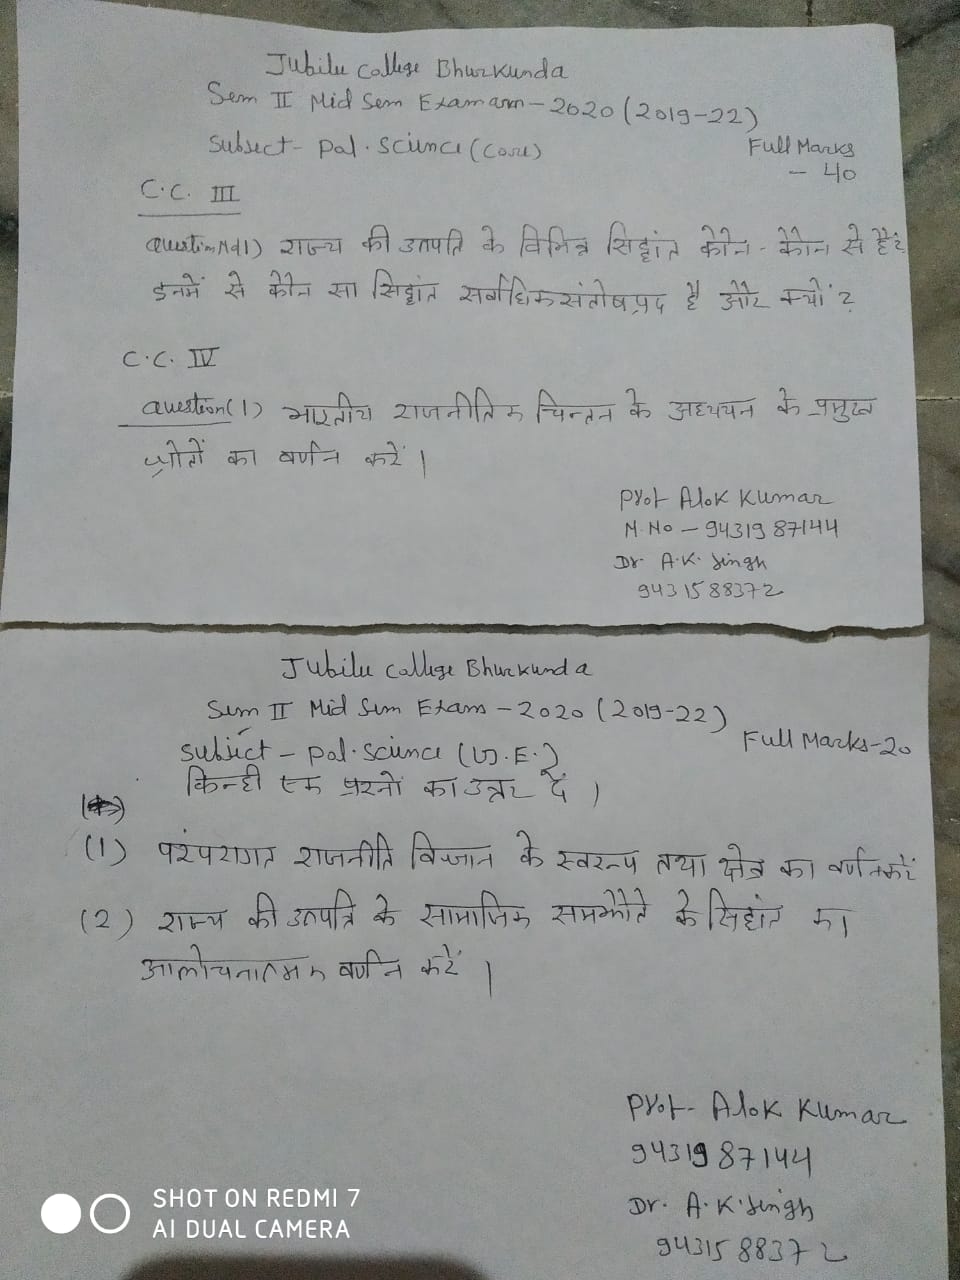 Jubilee College Bhurkunda
Sem II Mid Sem Exam - 2020 (2019-22)
Subject - Pol. Science (Core)
Full Marks
- 40
C.C. III
Question No 1) राज्य की उत्पति के विभिन्न सिद्धांत कौन - कौन से हैं?
इनमें से कौन सा सिद्धांत सर्वाधिक संतोषप्रद है और क्यों ?
C.C. IV
Question (1) भारतीय राजनीतिक चिन्तन के अध्ययन के प्रमुख
स्रोतों का वर्णन करें ।
Prof Alok Kumar
M.No - 9431987144
Dr. A.K. Singh
9431588372
Jubilee College Bhurkunda
Sem II Mid Sem Exam - 2020 (2019-22)
Subject - Pol. Science (G.E.)
Full Marks - 20
किन्ही एक प्रश्नों का उत्तर दें ।
(1) परंपरागत राजनीति विज्ञान के स्वरूप तथा क्षेत्र का वर्णन करें
(2) राज्य की उत्पति के सामाजिक समझौते के सिद्धांत का
आलोचनात्मक वर्णन करें ।
Prof - Alok Kumar
9431987144
Dr. A.K. Singh
9431588372
SHOT ON REDMI 7
AI DUAL CAMERA